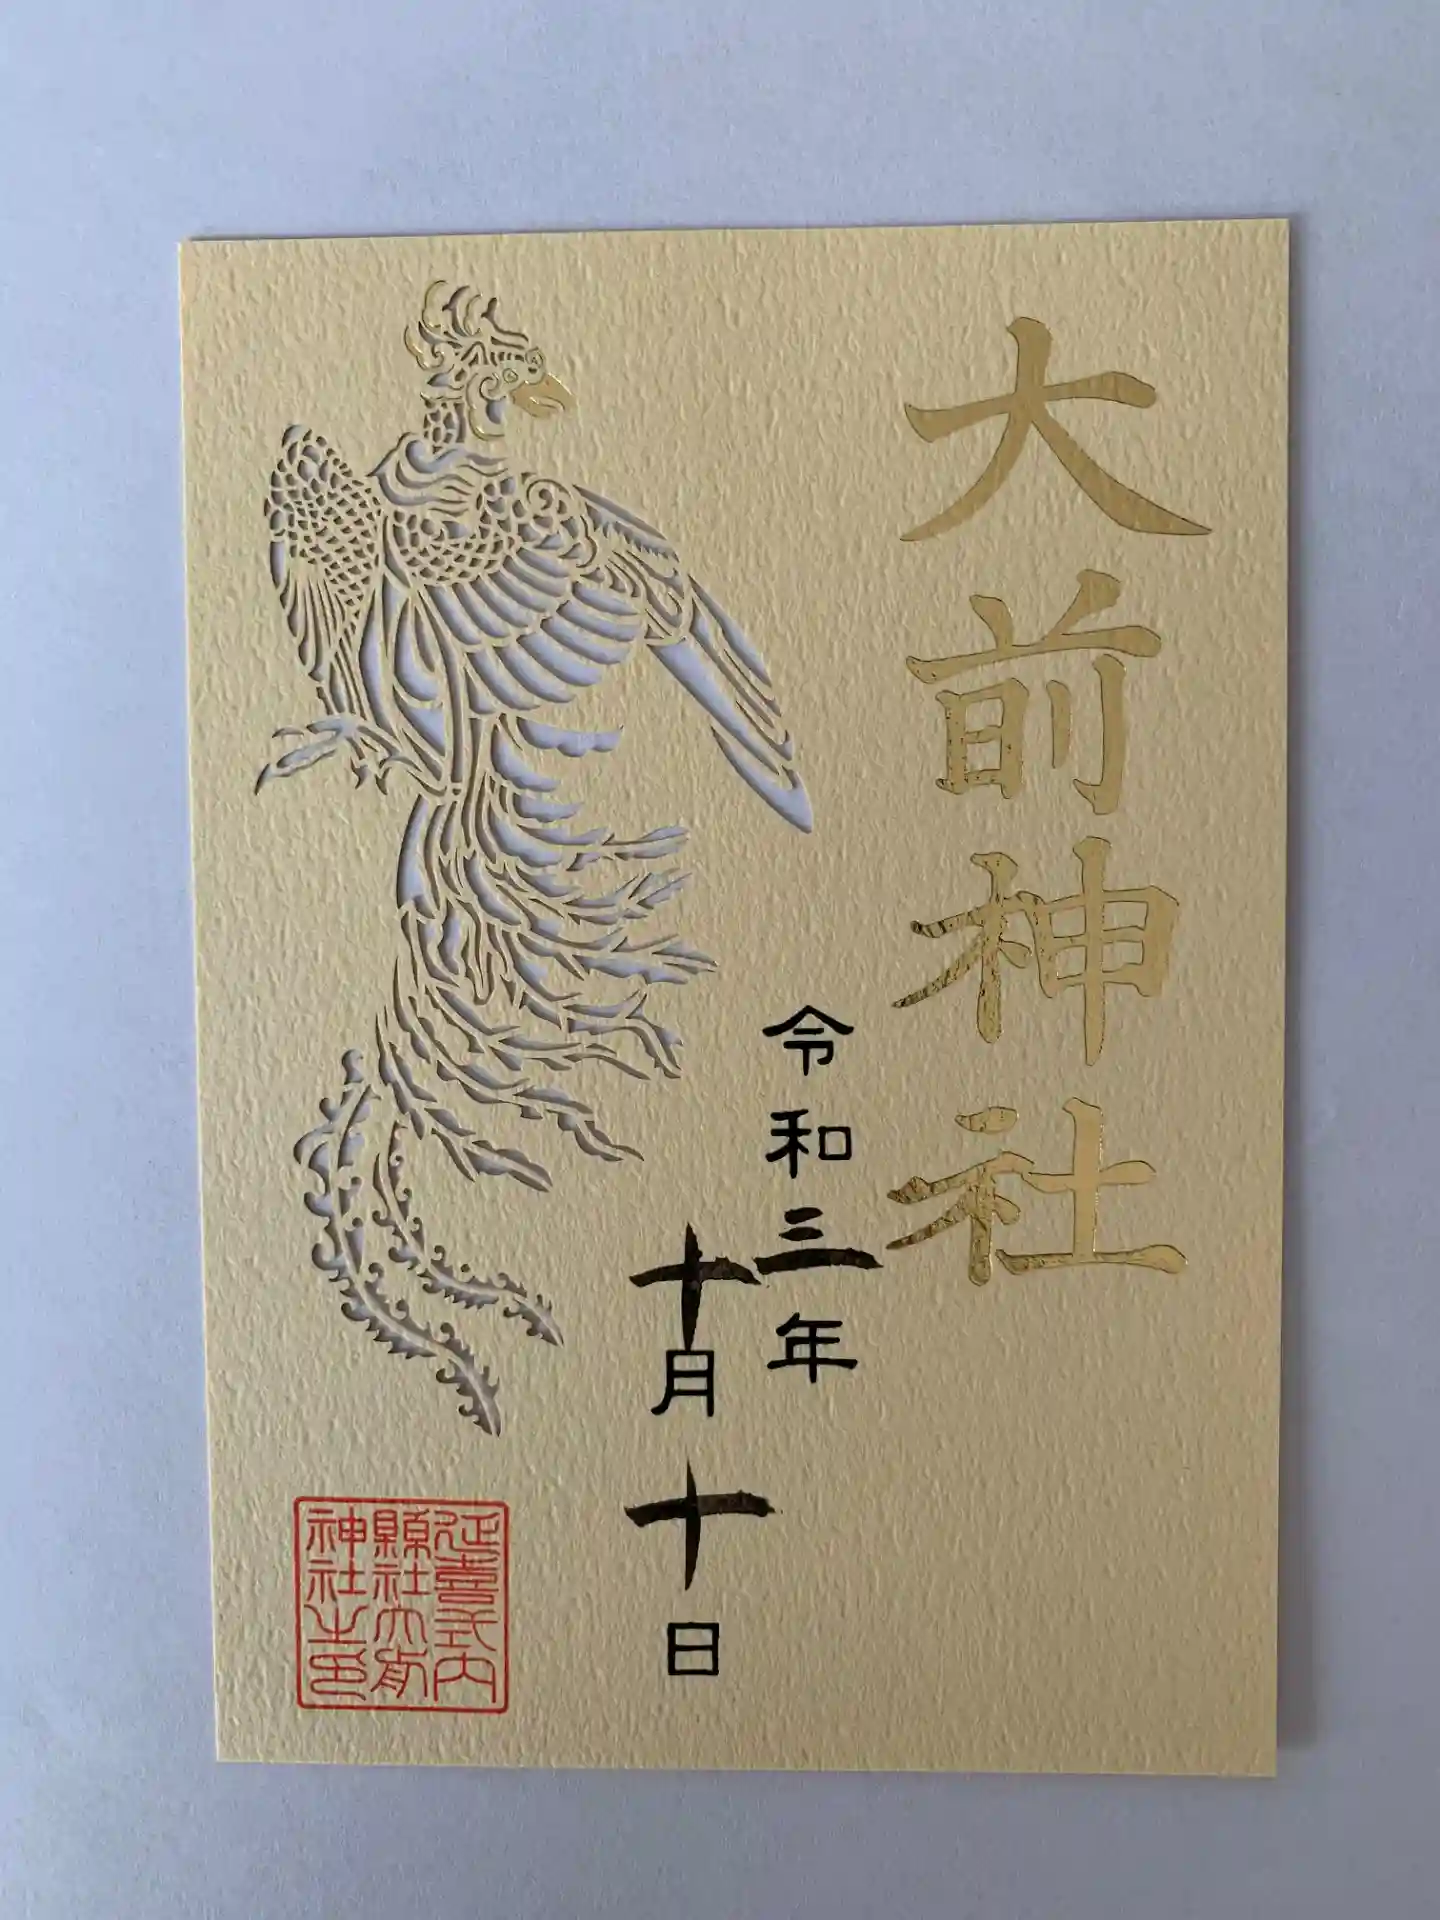 大前神社
令和三年
十月十日
延喜式内
縣社大前
神社之印